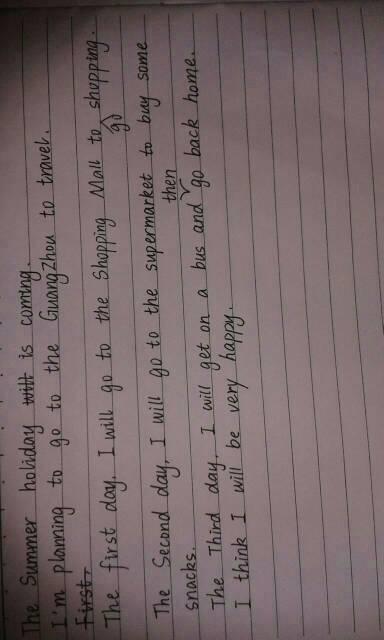 The Summer holiday will is coming.
I'm planning to go to the GuangZhou to travel.
First.
The first day, I will go to the Shopping Mall to go shopping.
The Second day, I will go to the supermarket to buy some
snacks.
The Third day, I will get on a bus and then go back home.
I think I will be very happy.